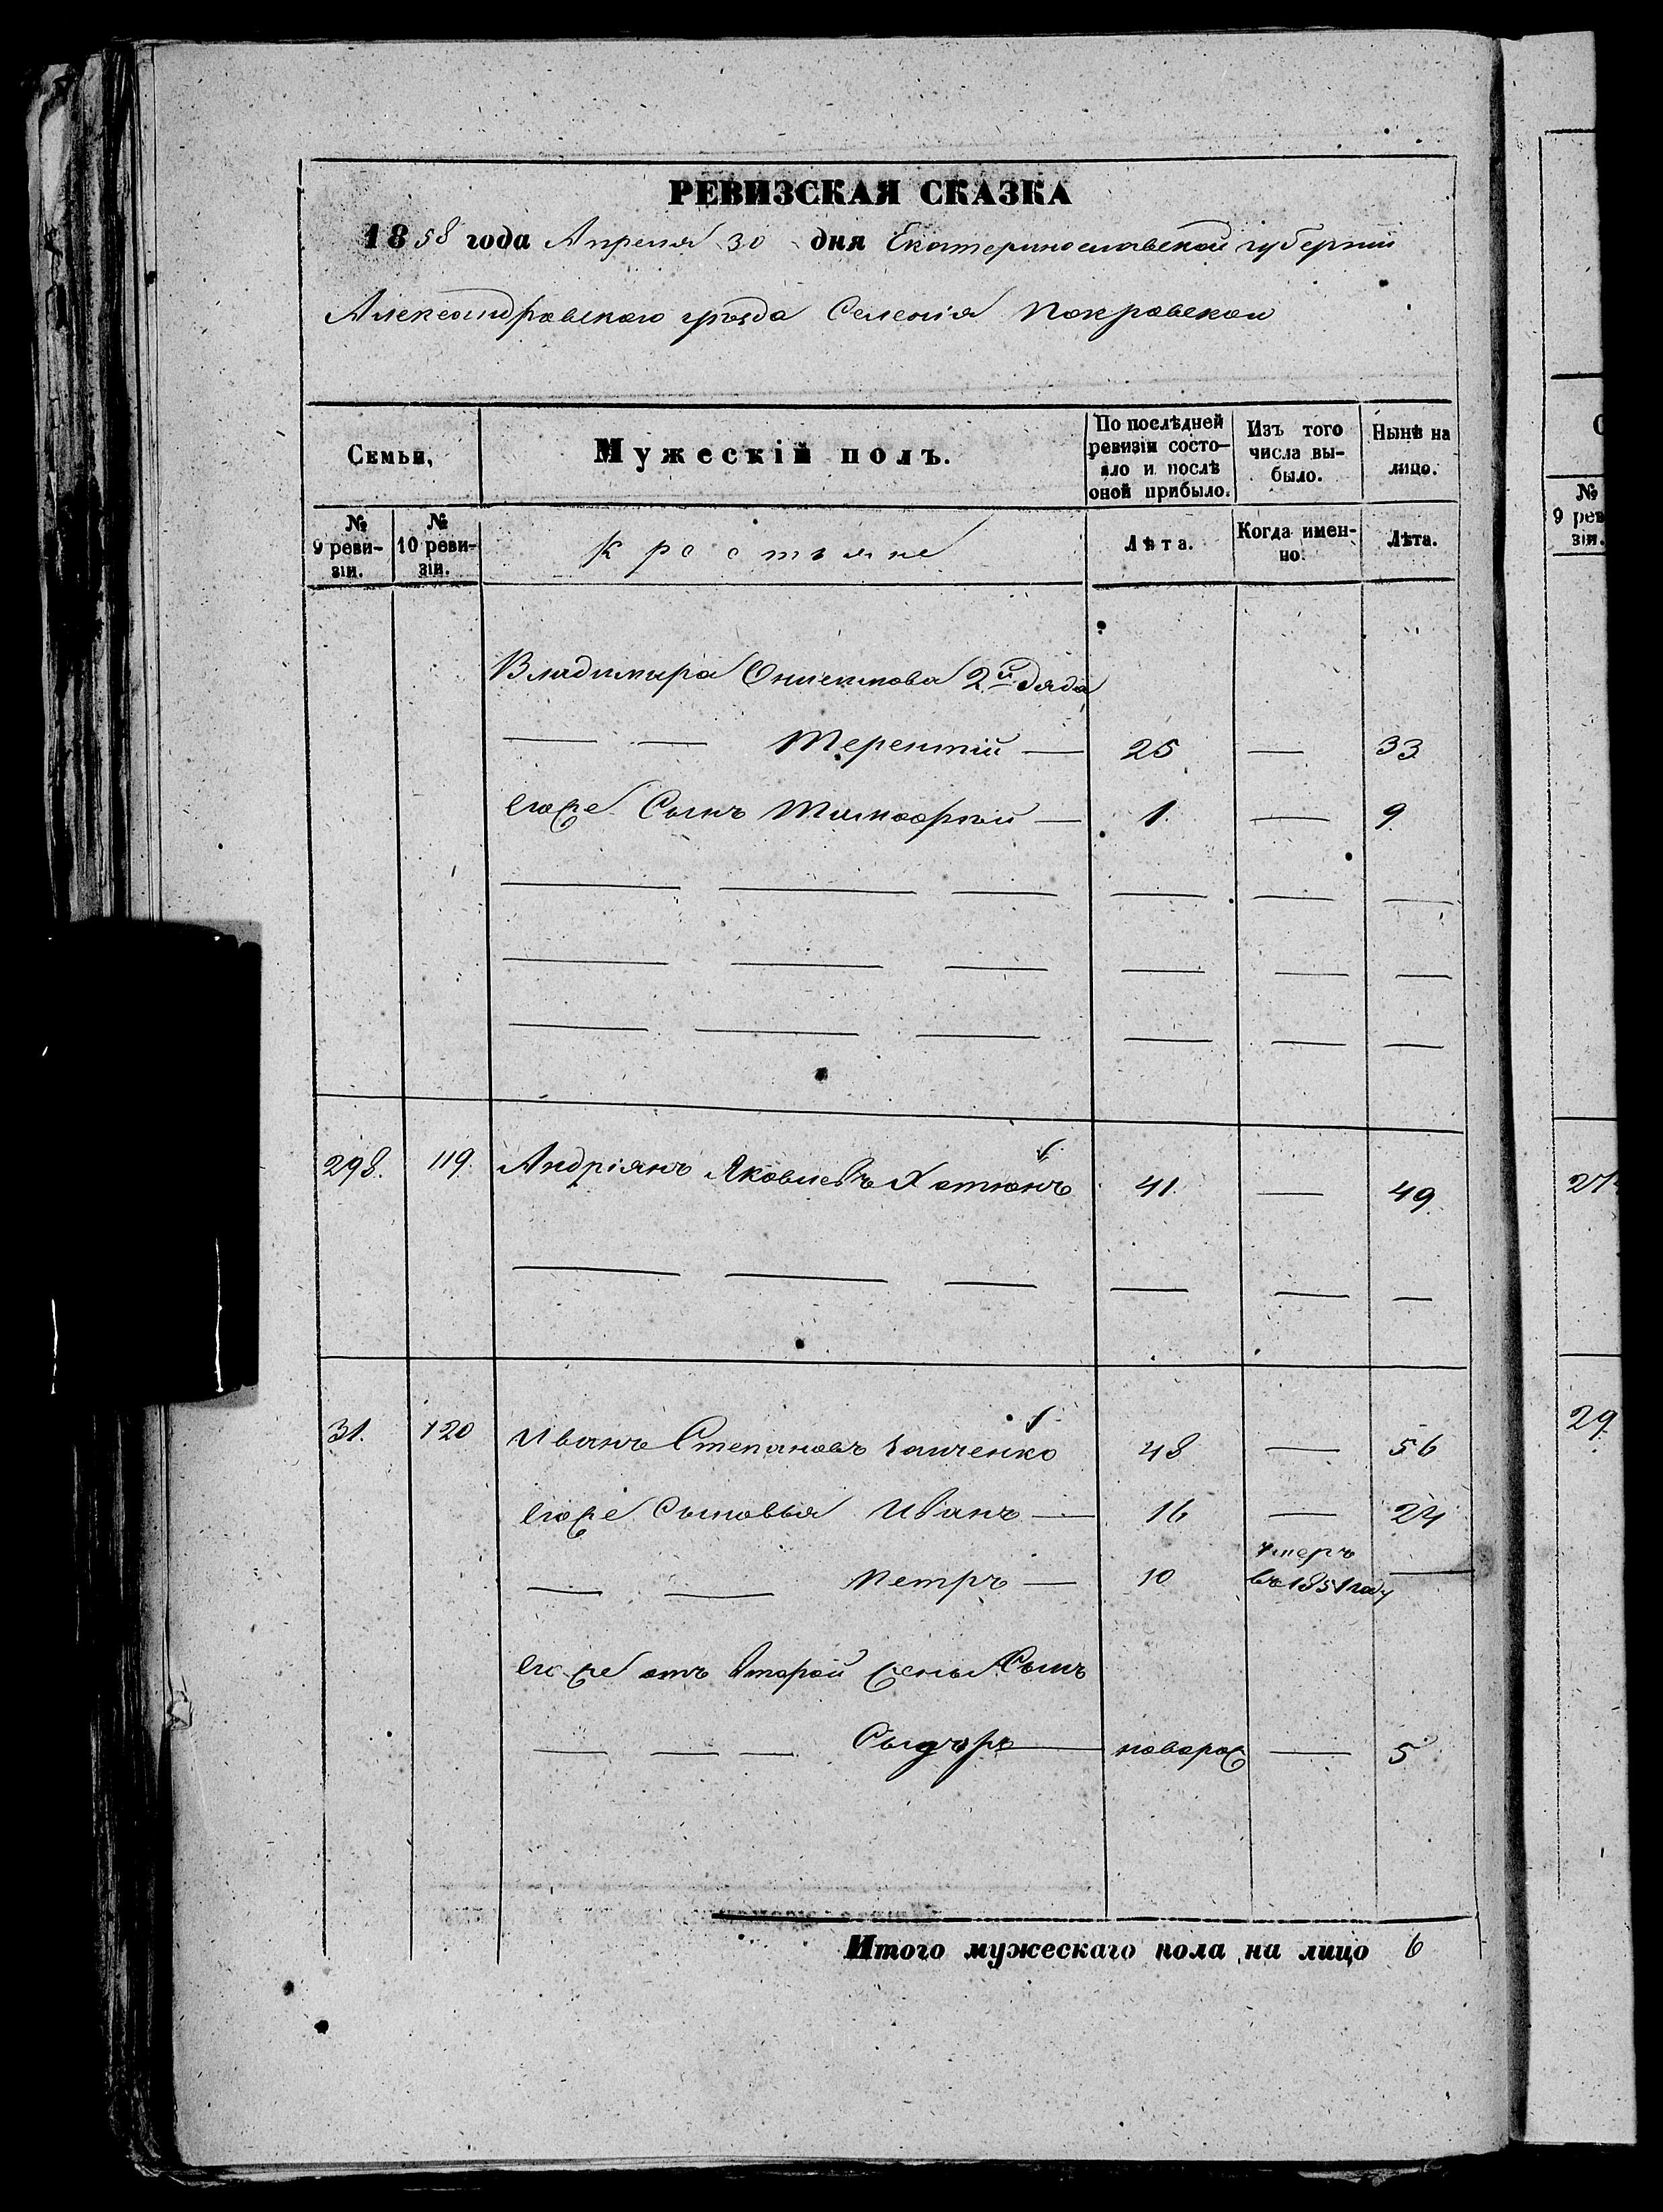 РЕВИЗСКАЯ СКАЗКА
1858 года Апреля 30 дня Екатеринославской губернии
Александровскаго уѣзда Селенія Покровскои
Семьи,
Мужескій полъ.
По послѣдней ревизіи состо-
яло и послѣ
оной прибыло.
Изъ того
числа вы-
было.
Нынѣ на
лицо.
№
9 реви-
зіи.
№
10 реви-
зіи.
Крестьяне
Лѣта.
Когда имен-
но.
Лѣта.
Владимира Онисимова 2й дядя
— — Терентій — 25 — 33
Егоже Сынъ Тимофѣй — 1 — 9
298. 119. Андріянъ Яковлевъ Хатюнъ 41. — 49.
31. 120 Иванъ Степановъ 48 — 56
Егоже Сыновья Иванъ — 16 — 24
— — Петръ — 10 умеръ
въ 1851 году —
Егоже отъ второй жены Сынъ
— — — Сыдоръ — новорож — 5
Итого мужескаго пола на лицо 6
№
9 рев
зіи.
27
29.